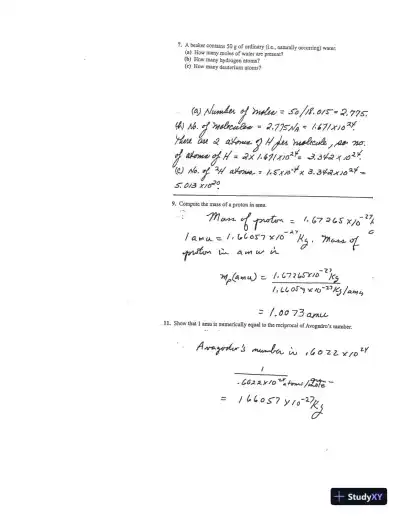 7. A beaker contains 50 g of ordinary (i.e., naturally occurring) water.
(a) How many moles of water are present?
(b) How many hydrogen atoms?
(c) How many deuterium atoms?
(a) Number of moles = 50/18.015 = 2.775.
(b) No. of molecules = 2.775 NA = 1.671x10^24.
There are 2 atoms of H per molecule, so no.
of atoms of H = 2x 1.671x10^24 = 3.342 x 10^24.
(c) No. of ²H atoms = 1.5x10^-4 x 3.342x10^24 =
5.013 x10^20.
9. Compute the mass of a proton in amu.
Mass of proton = 1.67265x10^-27
1 amu = 1.66057x10^-27 Kg. Mass of
proton in amu is
mp(amu) = 1.67265x10^-27 Kg
1.66057 x10^-27 Kg/amu
= 1.0073 amu
11. Show that 1 amu is numerically equal to the reciprocal of Avogadro's number.
Avagodro's number is .6022 x10^24
1
.6022x10^24 atoms/
= 166057 x10^-27 Kg
+ StudyXY